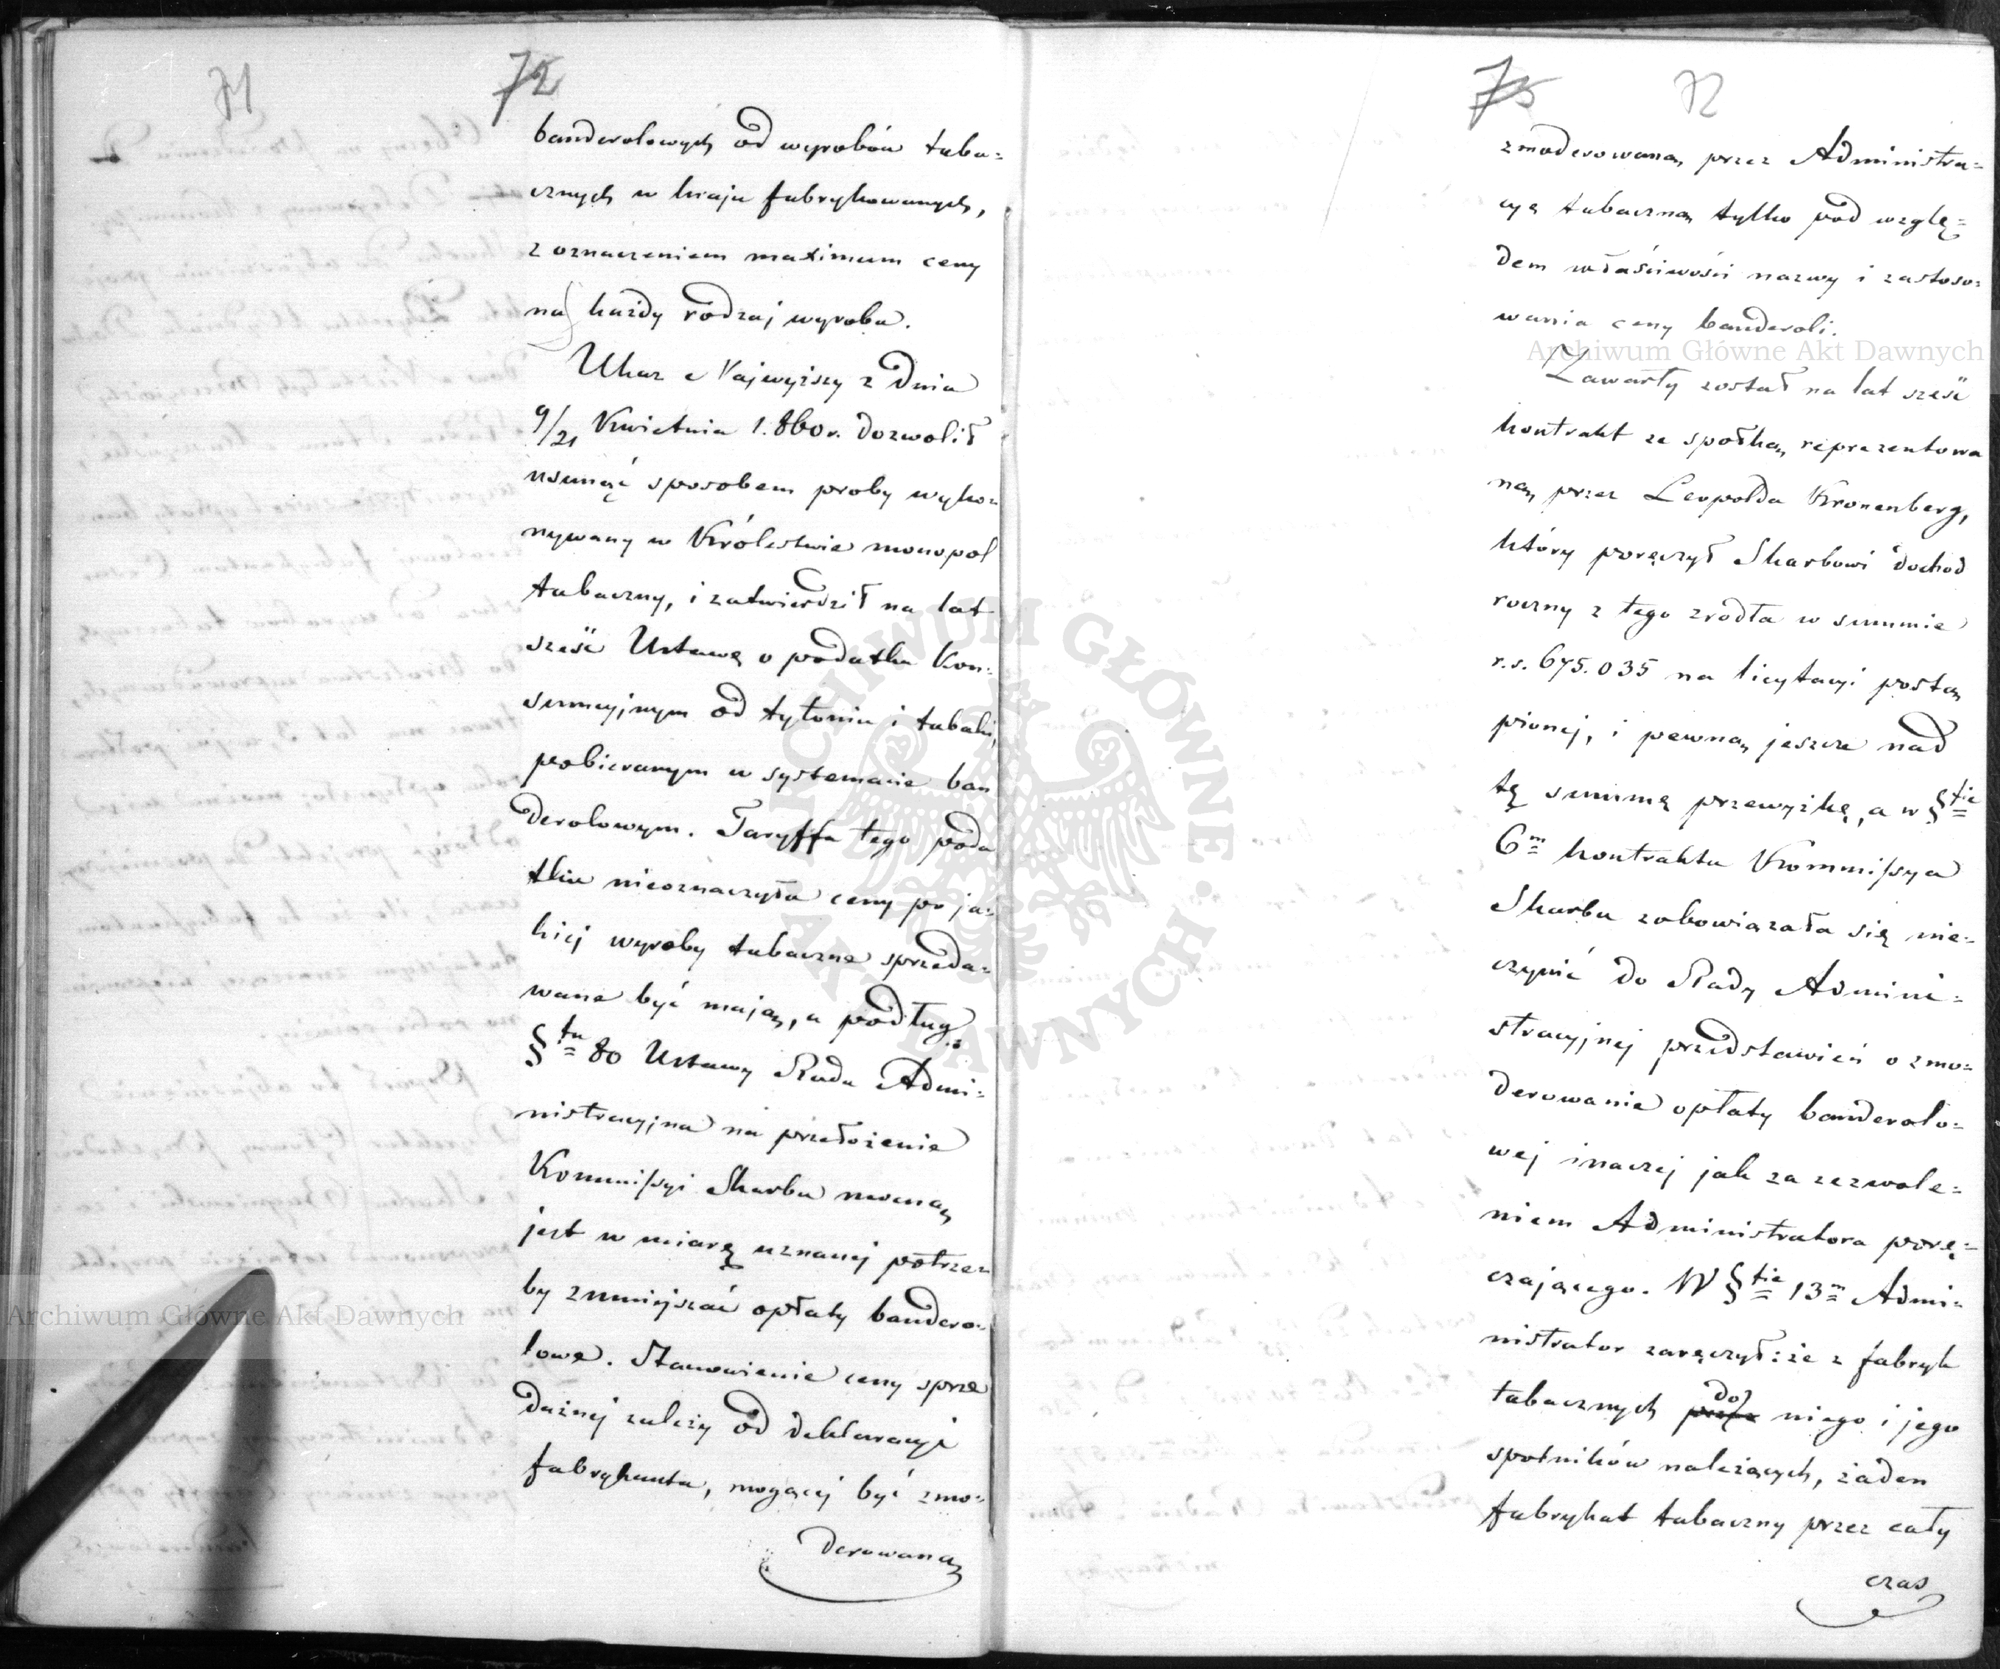 71
72
banderolowych od wyrobów taba=
cznych w kraju fabrykowanych,
z oznaczeniem maximum ceny
na każdy rodzaj wyrobu.
Ukaz Najwyższy z dnia
9/21 Kwietnia 1.860 r. dozwolił
usunąć sposobem proby wyko=
nywany w Królestwie monopol
tabaczny, i zatwierdził na lat
sześć Ustawę o podatku kon=
sumcyjnym od tytoniu i tabaki,
pobieranym w systemacie ban
derolowym. Taryffa tego poda
tku nieoznaczyła ceny po ja=
kiej wyroby tabaczne sprzeda=
wane być mają, a podług
§tu 80 Ustawy Rada Admi=
nistracyjna na przełożenie
Kommissyi Skarbu mocną
jest w miarę uznanej potrze=
by zmniejszać opłaty bandero=
lowe. Stanowienie ceny sprze
dażnej zależy od deklaracyi
fabrykanta, mogącej być zmo=
derowaną
75
72
zmoderowaną przez Administra=
cyę tabaczną tylko pod wzglę=
dem właściwości nazwy i zastoso=
wania ceny banderoli.
Zawarty został na lat sześć
kontrakt ze spółką reprezentowa
ną przez Leopolda Kronenberg,
który poręczył Skarbowi dochod
roczny z tego zrodła w summie
r.s. 675.035 na licytacyi postą
pionej, i pewną jeszcze nad
tę summę przewyżkę, a w §tie
6m kontraktu Kommissya
Skarbu zobowiązała się nie=
czynić do Rady Admini=
stracyjnej przedstawień o zmo=
derowanie opłaty banderolo=
wej inaczej jak za zezwole=
niem Administratora porę=
czającego. W §tie 13m Admi=
nistrator zaręczył: że z fabryk
tabacznych do niego i jego
spolników należących, żaden
fabrykat tabaczny przez cały
czas
Archiwum Główne Akt Dawnych
Archiwum Główne Akt Dawnych
ARCHIWUM GŁÓWNE AKT DAWNYCH